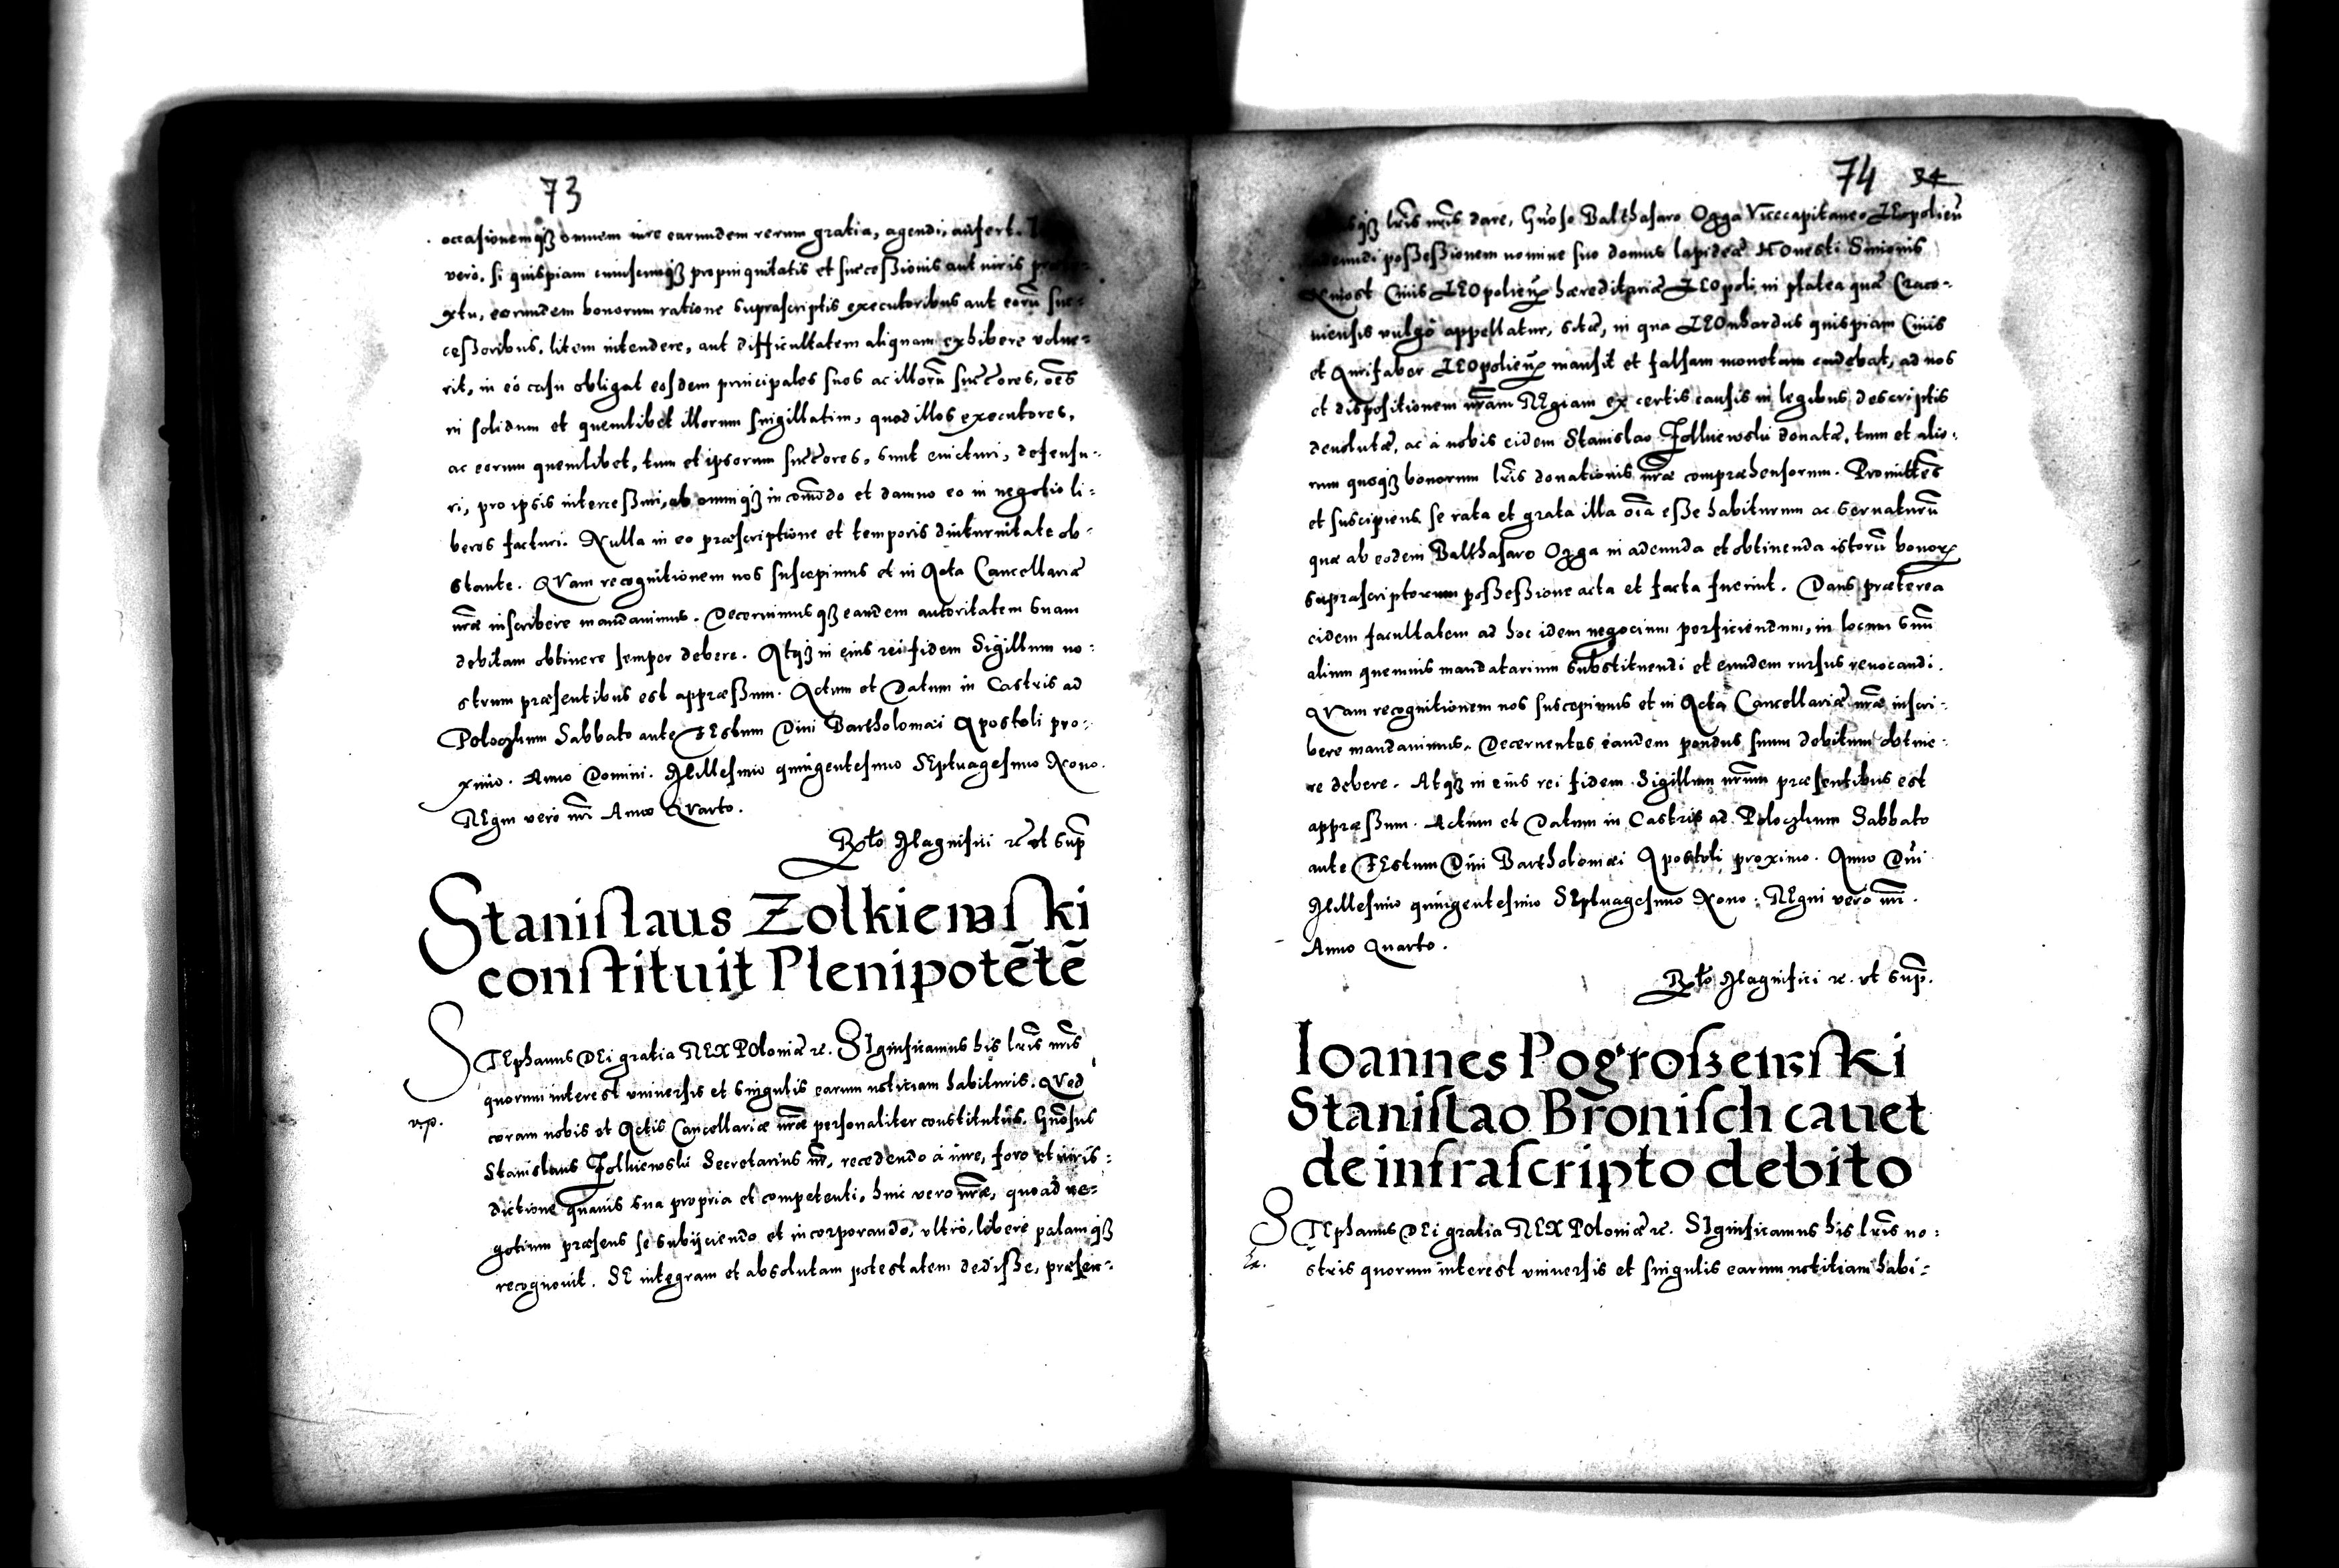 73
occasionemqȝ omnem iure earundem rerum gratia, agendi, aufert.
vero, si quispiam cuiuscumqȝ propinquitatis et successionis aut iuris
xtu, eorundem bonorum ratione suprascriptis executoribus aut eorũ suc-
cessoribus, litem intendere, aut difficultatem aliquam exhibere volue-
rit, in eo casu obligat eosdem principales suos ac illorũ succ̃ores, oẽs
in solidum et quemlibet illorum singillatim, quod illos executores,
ac eorum quemlibet, tum et ipsorum succ̃ores, sunt euicturi, defensu-
ri, pro ipsis intercessuri, ab omniqȝ incom̃odo et damno eo in negotio li-
beros facturi. Nulla in eo præscriptione et temporis diuturnitate ob-
stante. QVam recognitionem nos suscepimus et in Acta Cancellariæ
nr̃æ inscribere mandauimus. Decernimusqȝ eandem autoritatem suam
debitam obtinere semper debere. Atqȝ in eius rei fidem Sigillum no-
strum præsentibus est appræssum. Actum et Datum in Castris ad
Poloczkum Sabbato ante FEstum Diui Bartholomæi Apostoli pro-
ximo. Anno Domini. Millesimo quingentesimo SEptuagesimo Nono.
REgni vero nr̃i Anno QVarto.
Rel̃to Magnifici ꝛc̃ ut sup̃
Stanislaus Zolkiewski
constituit Plenipotẽtẽ
STEphanus DEi gratia REX POloniæ ꝛc. SIgnificamus his lr̃is nr̃is
quorum interest vniuersis et singulis earum notitiam habituris. QVod
coram nobis et Actis Cancellariæ nr̃æ personaliter constitutus. Gñosus
v.p.
Stanislaus Zolkiewski Secretarius nr̃, recedendo à iure, foro et iuris-
dictione quauis sua propria et competenti, huic vero nr̃æ, quoad ne-
gotium præsens se subijciendo et incorporando, vltro, libere palamqȝ
recognouit. SE integram et absolutam potestatem dedisse, præsen-
74 34
lr̃is nr̃is dare, Gñoso Balthasaro Ogga Vicecapitaneo LEopolieñ
possessionem nomine suo domus lapideæ HOnesti Simonis
Ciuis LEOpolieñ hæreditariæ LEOpoli in platea quæ Craco-
uiensis vulgo appellatur, sitæ, in qua LEOnhardus quispiam Ciuis
et Aurifaber LEOpolieñ mansit et falsam monetam cudebat, ad nos
et dispositionem nr̃am REgiam ex certis causis in legibus descriptis
deuolutæ, ac à nobis eidem Stanislao Zolkiewski donatæ, tum et alio-
rum quoqȝ bonorum lr̃is donationis nr̃æ compræhensorum. Promittẽs
et suscipiens se rata et grata illa oĩa esse habiturum ac seruaturũ
quæ ab eodem Balthasaro Ogga in adeunda et obtinenda istorũ bonoꝝ
suprascriptorum possessione acta et facta fuerint. Dans præterea
eidem facultatem ad hoc idem negocium perficiendum, in locum suũ
alium quemuis mandatarium substituendi et eundem rursus reuocandi.
QVam recognitionem nos suscepimus et in Acta Cancellariæ nr̃æ inscri-
bere mandauimus. Decernentes eandem pondus suum debitum obtine-
re debere. Atqȝ in eius rei fidem Sigillum nr̃um præsentibus est
appræssum. Actum et Datum in Castris ad Poloczkum Sabbato
ante FEstum Diui Bartholomæi Apostoli proximo. Anno Dñi
Millesimo quingentesimo SEptuagesimo Nono. REgni vero nr̃i.
Anno Quarto.
Rel̃to Magnifici ꝛc. ut sup̃.
Ioannes Pogroszewski
Stanislao Bronisch cauet
de infrascripto debito
STEphanus DEi gratia REX POloniæ ꝛc. SIgnificamus his lr̃is no-
stris quorum interest vniuersis et singulis earum notitiam habi-